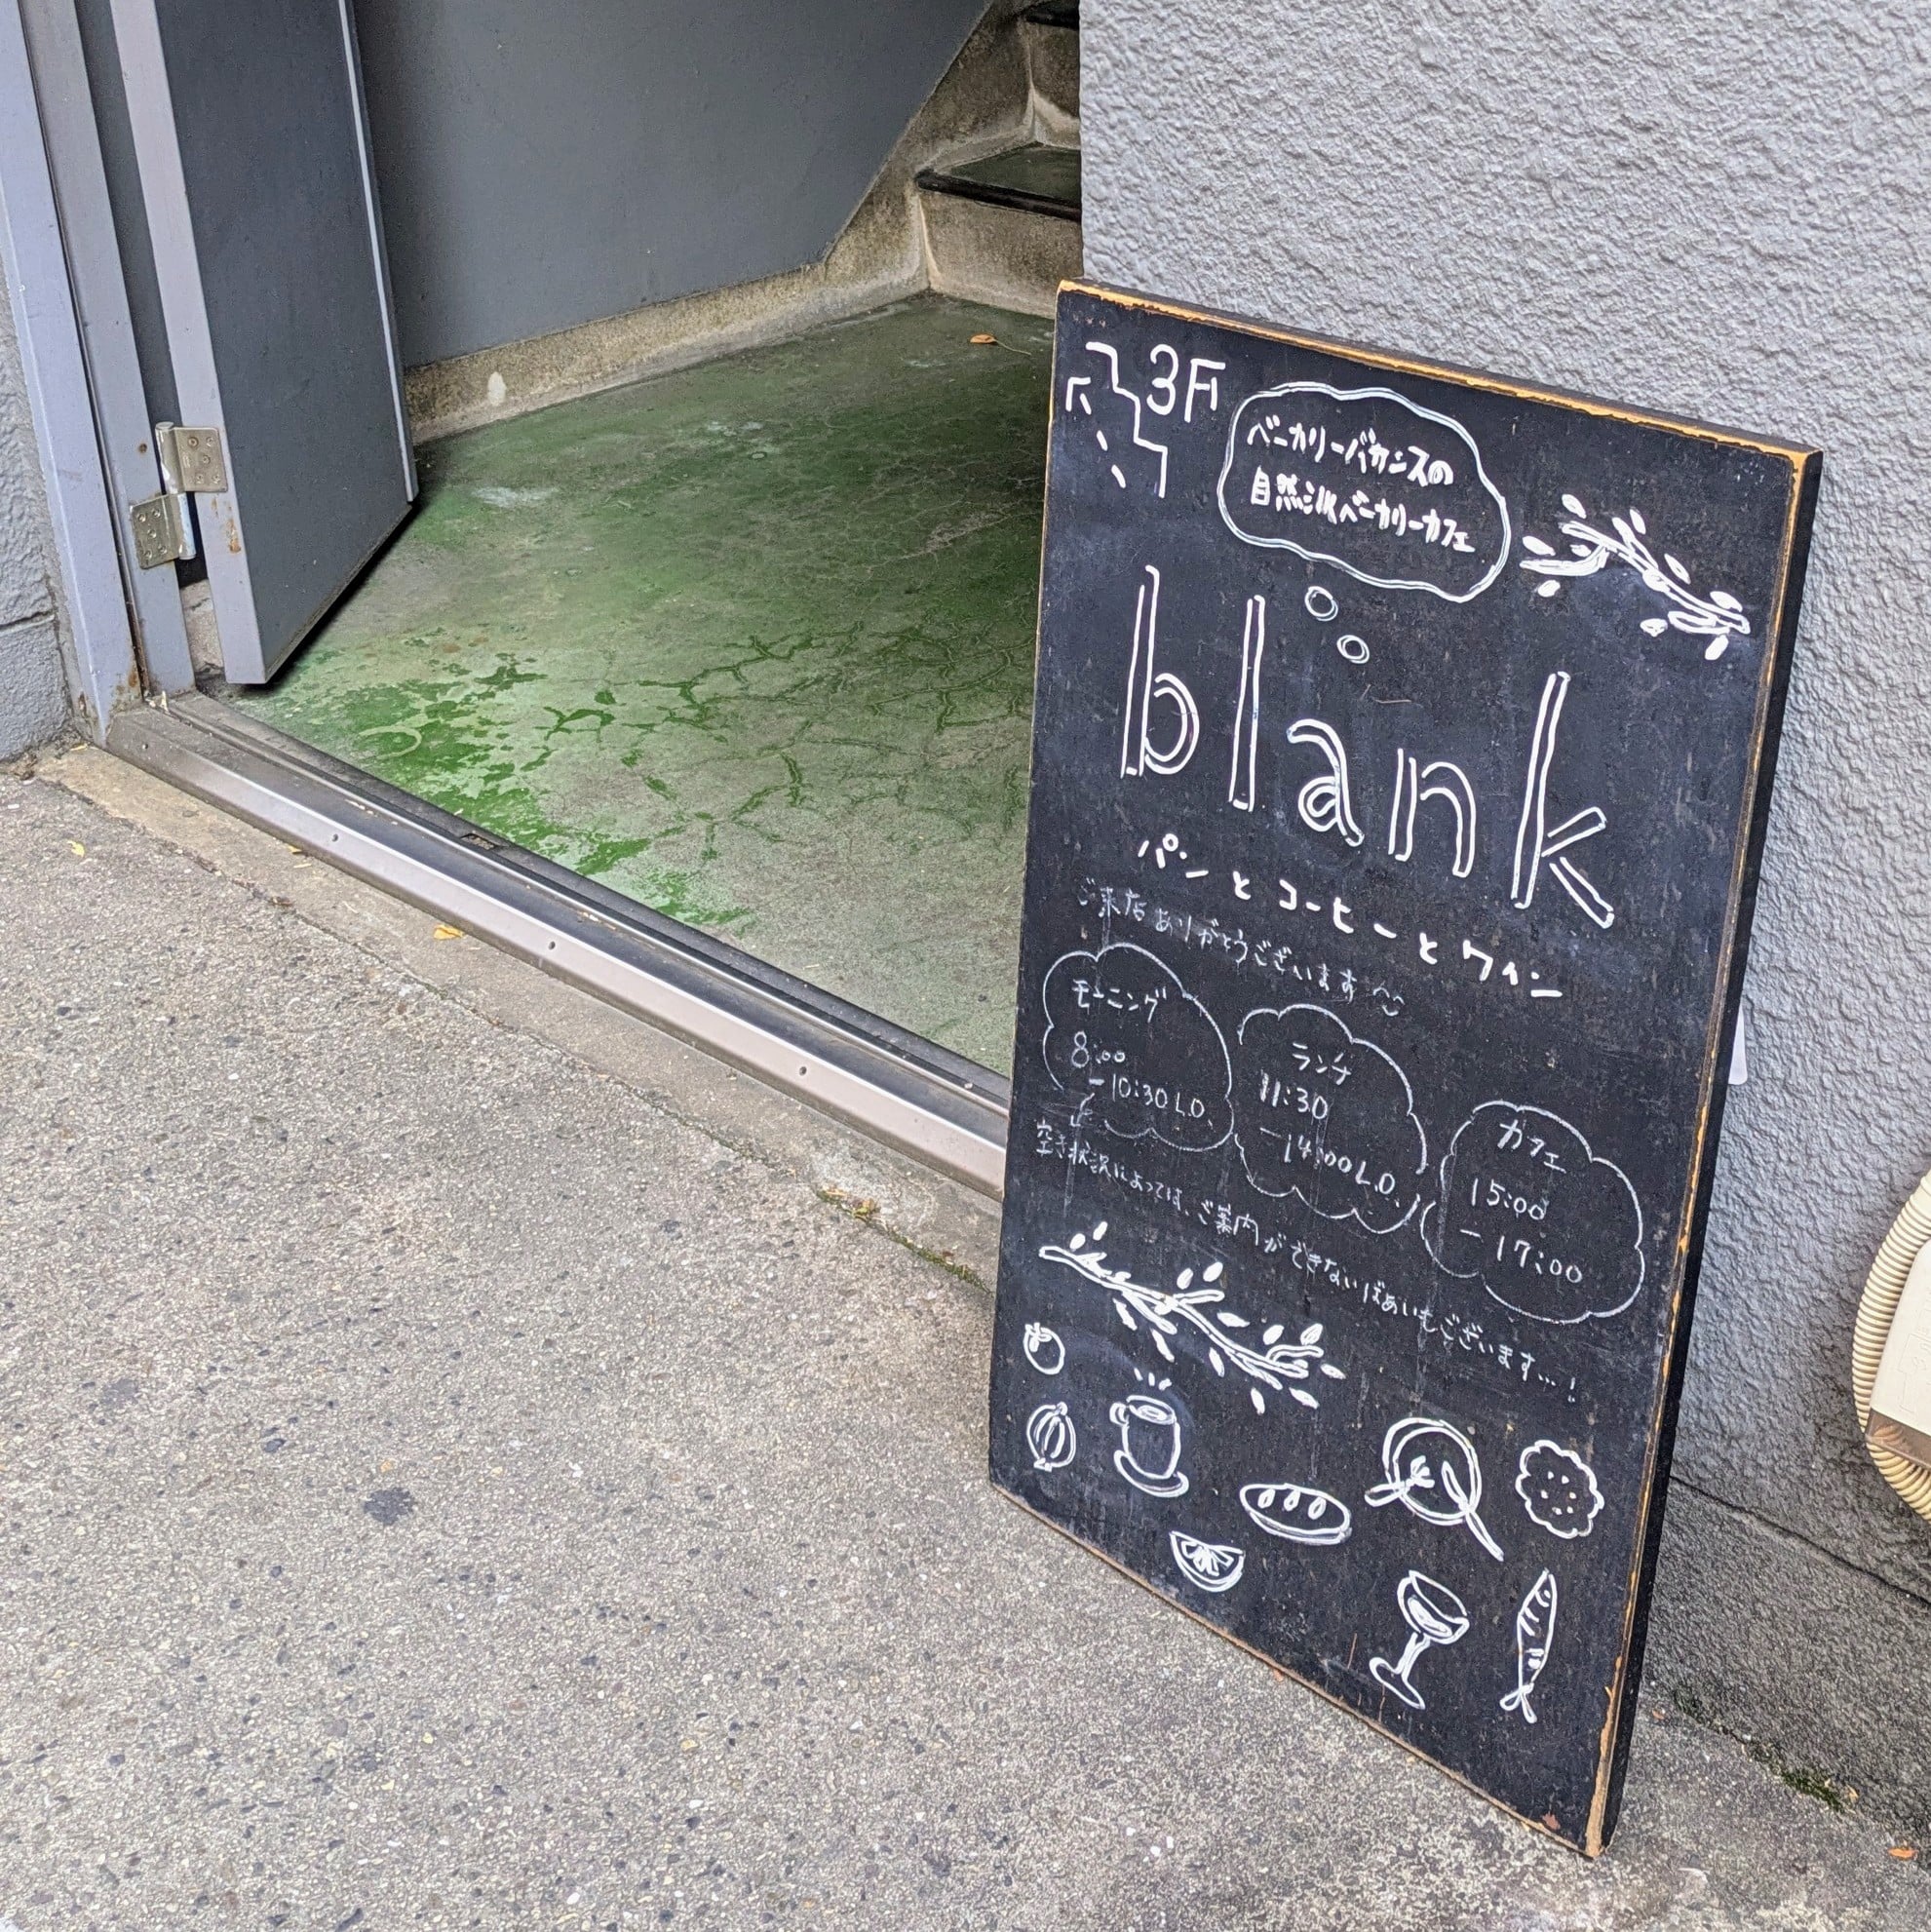 3F
ベーカリーバカンスの
自然派ベーカリーカフェ
blank
パンとコーヒーとワイン
ご来店ありがとうございます
モーニング
8:00
-10:30 L.O.
ランチ
11:30
-14:00 L.O.
カフェ
15:00
-17:00
空き状況によっては、ご案内ができないばあいもございます…!